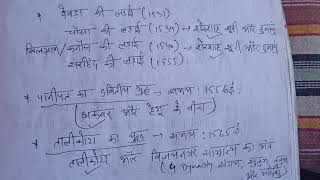 * चौसा की लड़ाई (1531)
चौसा की लड़ाई (1539) → शेरशाह सूरी और हुमायूं
बिलग्राम/कन्नौज की लड़ाई (1540) → शेरशाह सूरी और हुमायूं
सरहिंद की लड़ाई (1555)
* पानीपत का द्वितीय युद्ध → समय : 1556 ई
(अकबर और हेमू के बीच)
* तालीकोटा का युद्ध → समय : 1565 ई
तालीकोटा और विजयनगर साम्राज्य की ओर
(4 Dynasty